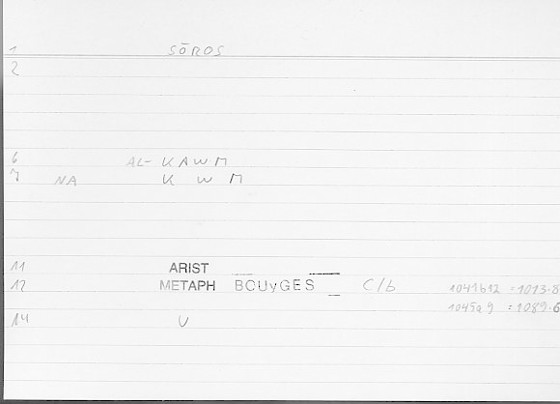 1 SŌROS
2
6 AL- KAWM
7 NA K W M
11 ARIST
12 METAPH BOUyGES C/b 1041b12 = 1013.8
1045a9 = 1089.6
14 V